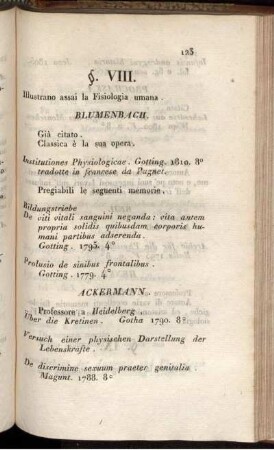 123
§. VIII.
Illustrano assai la Fisiologia umana.
BLUMENBACH.
Già citato.
Classica è la sua opera.
Institutiones Physiologicae. Gotting. 1810. 8°
tradotte in francese da Pugnet.
Pregiabili le seguenti memorie.
Bildungstriebe
De viti vitali sanguini neganda: vita autem
propria solidis quibusdam corporis hu-
mani partibus adserenda.
Gotting. 1795. 4°
Prolusio de sinibus frontalibus.
Gotting. 1779. 4°
ACKERMANN.
Professore a Heidelberg.
Über die Kretinen. Gotha 1790. 8°
Versuch einer physischen Darstellung der
Lebenskräfte.
De discrimine sexuum praeter genitalia
Magunt. 1788. 8°